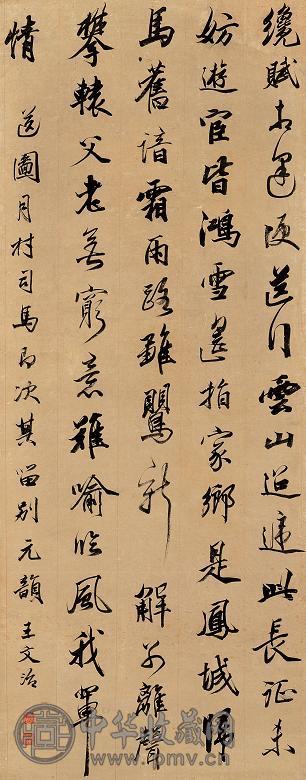 纔賦相逢便送行雲山迢遞此長征未
妨遊宦皆鴻雪遙指家鄉是鳳城歸
馬舊諳霜雨路雛鸎新解別離聲
攀轅父老無窮意難喻臨風我輩
情
送圖月村司馬即次其留別元韻 王文治
中华收藏网